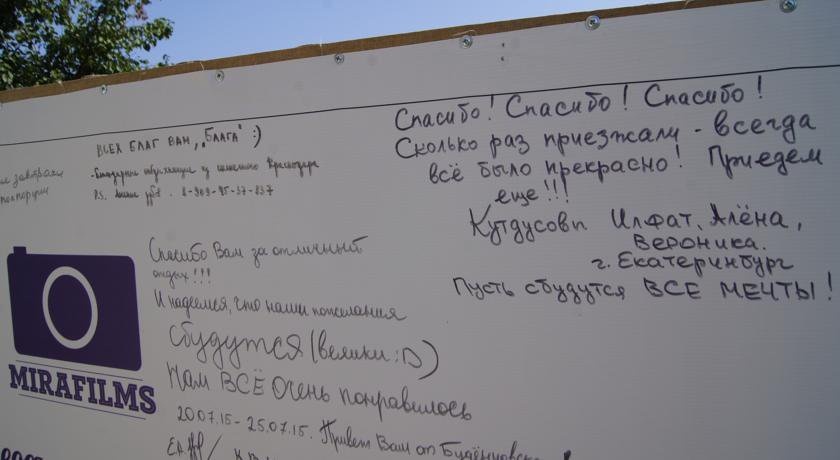 ВСЕХ БЛАГ ВАМ, „БЛАГА" :)
Краснодара
P.S.
завтраки
Спасибо! Спасибо! Спасибо!
Сколько раз приезжали - всегда
всё было прекрасно! Приедем
еще!!!
Кутдусовы Илфат, Алёна,
Вероника.
г. Екатеринбург
Пусть сбудутся ВСЕ МЕЧТЫ!
Спасибо Вам за отличный
отдых!!!
И надеемся, что наши пожелания
сбудутся (велики :D)
Нам ВСЁ Очень понравилось
20.07.15 - 25.07.15. Привет Вам от
MIRAFILMS